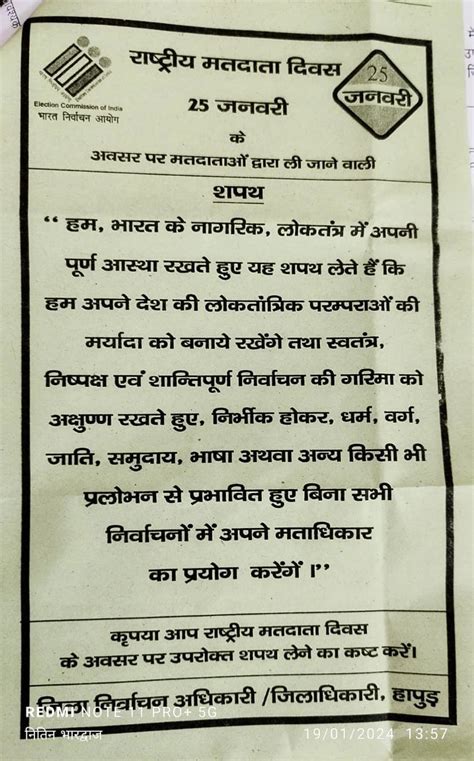 राष्ट्रीय मतदाता दिवस
25 जनवरी
25
जनवरी
Election Commission of India
भारत निर्वाचन आयोग
के
अवसर पर मतदाताओं द्वारा ली जाने वाली
शपथ
“ हम, भारत के नागरिक, लोकतंत्र में अपनी
पूर्ण आस्था रखते हुए यह शपथ लेते हैं कि
हम अपने देश की लोकतांत्रिक परम्पराओं की
मर्यादा को बनाये रखेंगे तथा स्वतंत्र,
निष्पक्ष एवं शान्तिपूर्ण निर्वाचन की गरिमा को
अक्षुण्ण रखते हुए, निर्भीक होकर, धर्म, वर्ग,
जाति, समुदाय, भाषा अथवा अन्य किसी भी
प्रलोभन से प्रभावित हुए बिना सभी
निर्वाचनों में अपने मताधिकार
का प्रयोग करेंगें ।”
कृपया आप राष्ट्रीय मतदाता दिवस
के अवसर पर उपरोक्त शपथ लेने का कष्ट करें।
जिला निर्वाचन अधिकारी /जिलाधिकारी, हापुड़
REDMI NOTE 11 PRO+ 5G
नितिन भारद्वाज
19/01/2024 13:57